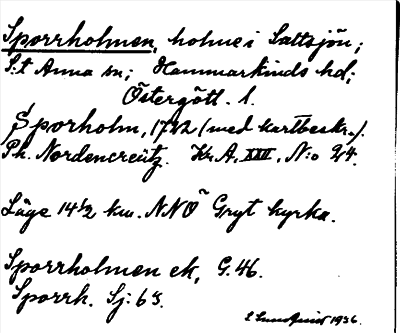 Sporrholmen, holme i Saltsjön;
S:t Anna sn; Hammarkinds hd;
Östergötl. l.
Sporholm, 1722 (med kartbeskr.).
Ph. Nordencreütz. Kr. A. XXII, N:o 24.
Läge 14½ km. NNÖ Gryt kyrka.
Sporrholmen ek, G. 46.
Sporrh. Sj: 63.
1936.